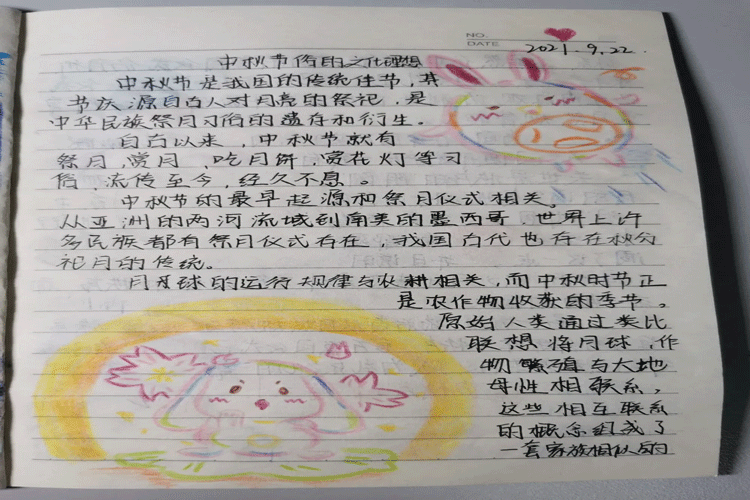 NO.
DATE
2021.9.22.
中秋节俗的文化理想
中秋节是我国的传统佳节,其
节庆源自古人对月亮的祭祀,是
中华民族祭月习俗的遗存和衍生。
自古以来,中秋节就有
祭月、赏月、吃月饼、赏花灯等习
俗,流传至今,经久不息。
中秋节的最早起源和祭月仪式相关。
从亚洲的两河流域到南美的墨西哥,世界上许
多民族都有祭月仪式存在,我国古代也存在秋分
祀月的传统。
月球的运行规律与农耕相关,而中秋时节正
是农作物收获的季节。
原始人类通过类比
联想将月球、作
物繁殖与大地
母性相联系,
这些相互联系
的概念组成了
一套家族相似的